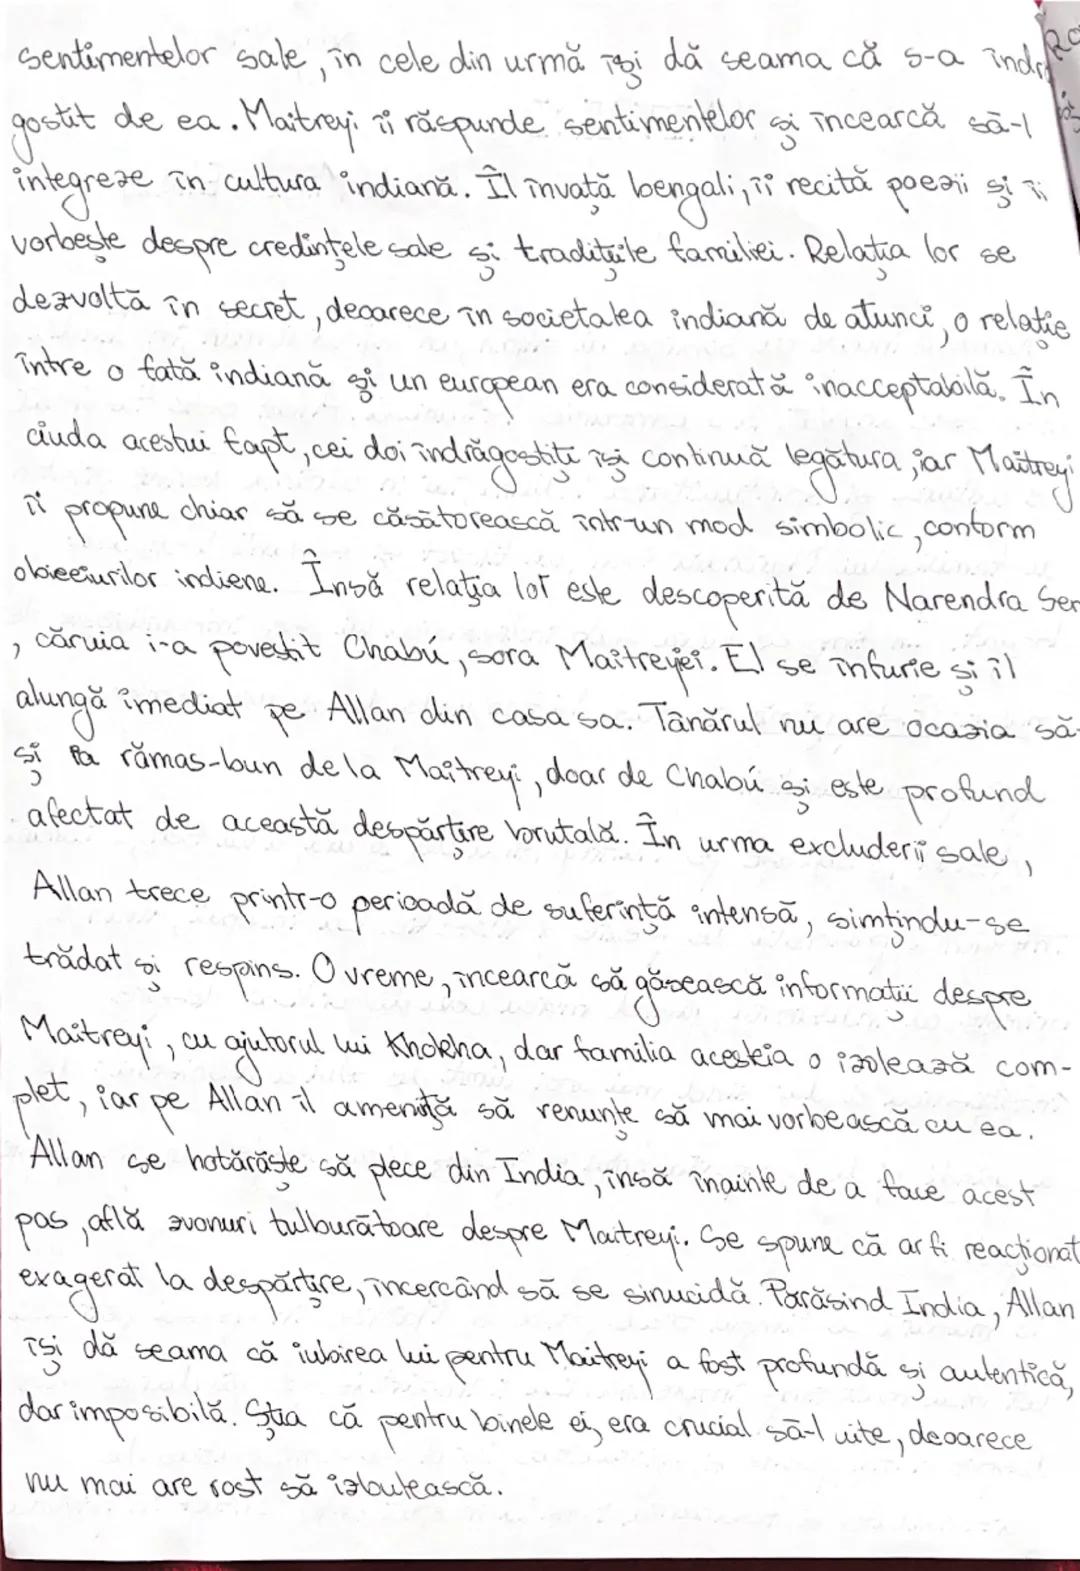 sentimentelor sale, în cele din urmă își dă seama că s-a îndră
gostit de ea. Maitreyi îi răspunde sentimentelor și încearcă să-l
integreze în cultura indiană. Îl învață bengali, îi recită poezii și îi
vorbește despre credințele sale și tradițiile familiei. Relația lor se
dezvoltă în secret, deoarece în societatea indiană de atunci, o relație
între o fată indiană și un european era considerată inacceptabilă. În
ciuda acestui fapt, cei doi îndrăgostiți își continuă legătura, iar Maitreyi
îi propune chiar să se căsătorească într-un mod simbolic, conform
obiceiurilor indiene. Însă relația lor este descoperită de Narendra Sen
, căruia i-a povestit Chabú, sora Maitreyiei. El se înfurie și îl
alungă imediat pe Allan din casa sa. Tânărul nu are ocazia să-
și ia rămas-bun de la Maitreyi, doar de Chabú și este profund
afectat de această despărțire brutală. În urma excluderii sale,
Allan trece printr-o perioadă de suferință intensă, simțindu-se
trădat și respins. O vreme, încearcă să găsească informații despre
Maitreyi, cu ajutorul lui Khokha, dar familia acesteia o izolează com-
plet, iar pe Allan îl amenință să renunțe să mai vorbească cu ea.
Allan se hotărăște să plece din India, însă înainte de a face acest
pas, află zvonuri tulburătoare despre Maitreyi. Se spune că ar fi reacționat
exagerat la despărțire, încercând să se sinucidă. Părăsind India, Allan
își dă seama că iubirea lui pentru Maitreyi a fost profundă și autentică,
dar imposibilă. Știa că pentru binele ei, era crucial să-l uite, deoarece
nu mai are rost să izbutească.